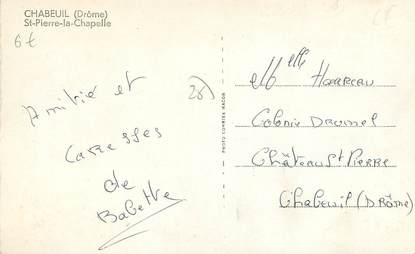 CHABEUIL (Drôme)
St-Pierre-la-Chapelle
6€
26)
Amitié et
caresses
de
Babette
PHOTO COMBIER MACON
elle
Colonie
Château St Pierre
Chabeuil (DRÔME)